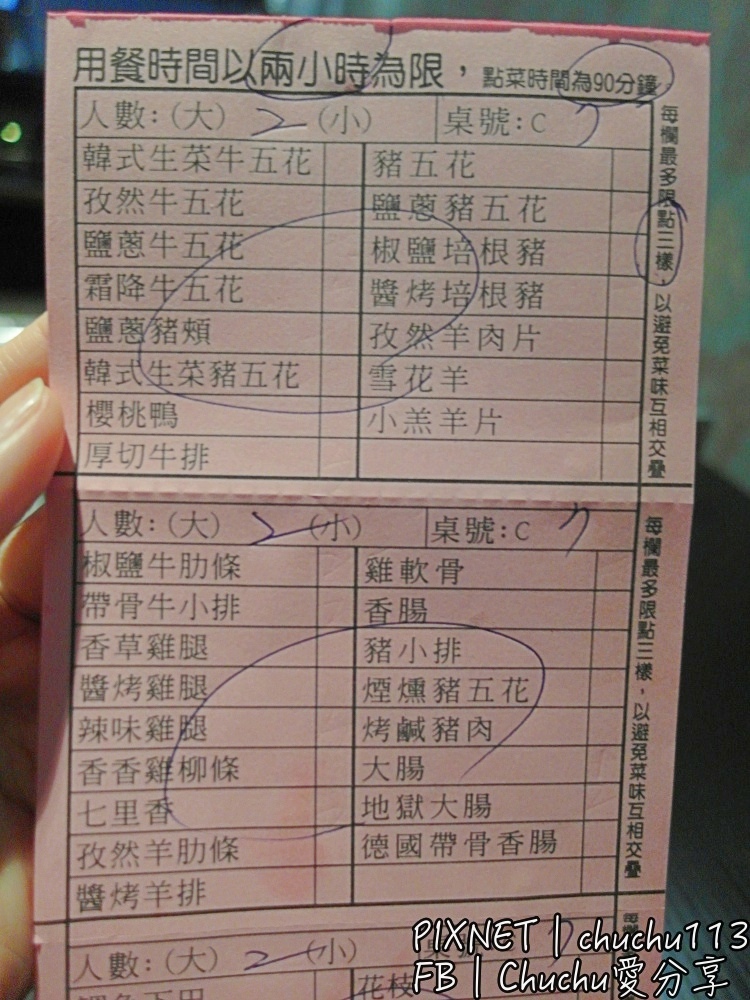 用餐時間以兩小時為限，點菜時間為90分鐘
人數:(大) 2 (小) 桌號:C 7
韓式生菜牛五花 豬五花
孜然牛五花 鹽蔥豬五花
鹽蔥牛五花 椒鹽培根豬
霜降牛五花 醬烤培根豬
鹽蔥豬頰 孜然羊肉片
韓式生菜豬五花 雪花羊
櫻桃鴨 小羔羊片
厚切牛排
每欄最多限點三樣，以避免菜味互相交疊
人數:(大) 2 (小) 桌號:C 7
椒鹽牛肋條 雞軟骨
帶骨牛小排 香腸
香草雞腿 豬小排
醬烤雞腿 煙燻豬五花
辣味雞腿 烤鹹豬肉
香香雞柳條 大腸
七里香 地獄大腸
孜然羊肋條 德國帶骨香腸
醬烤羊排
每欄最多限點三樣，以避免菜味互相交疊
人數:(大) 2 (小) 桌號 7
花枝
PIXNET | chuchu113
FB | Chuchu愛分享